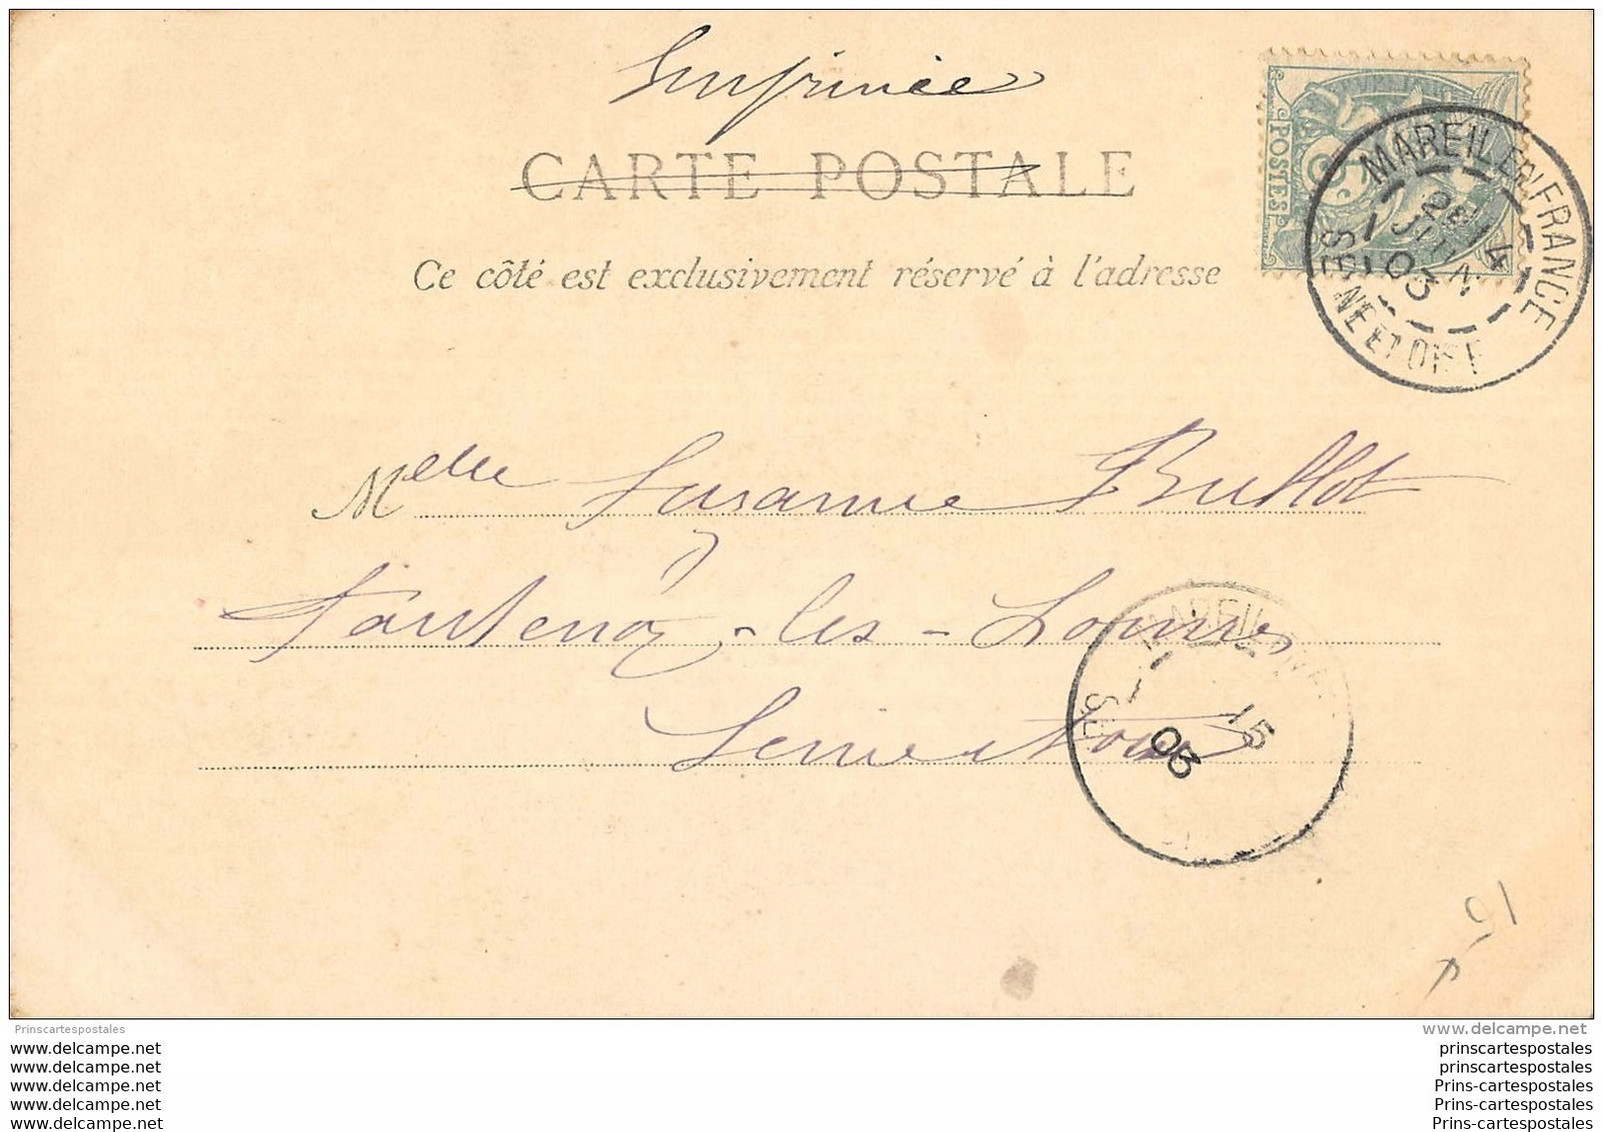 Imprimée
CARTE POSTALE
Ce côté est exclusivement réservé à l'adresse
POSTES
MAREIL EN FRANCE
2E 14
JUIN
03
SEINE ET OISE
Melle Suzanne Bullot
Fontenoy-les-Louvres
Seine et Oise
MAREIL EN
15
03
SE
Prinscartespostales
www.delcampe.net
www.delcampe.net
prinscartespostales
www.delcampe.net
prinscartespostales
www.delcampe.net
Prins-cartespostales
www.delcampe.net
Prins-cartespostales
www.delcampe.net
Prins-cartespostales